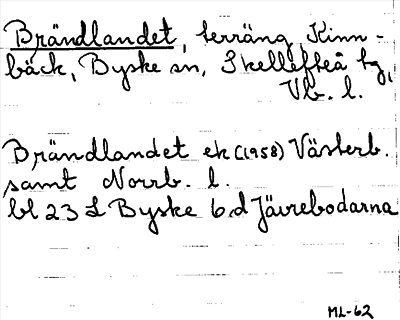 Brändlandet, terräng, Kinn-
bäck, Byske sn, Skellefteå tg,
Vb. l.
Brändlandet ek (1958) Västerb.
samt Norrb. l.
bl 23 L Byske 6 d Jävrebodarna
ML-62